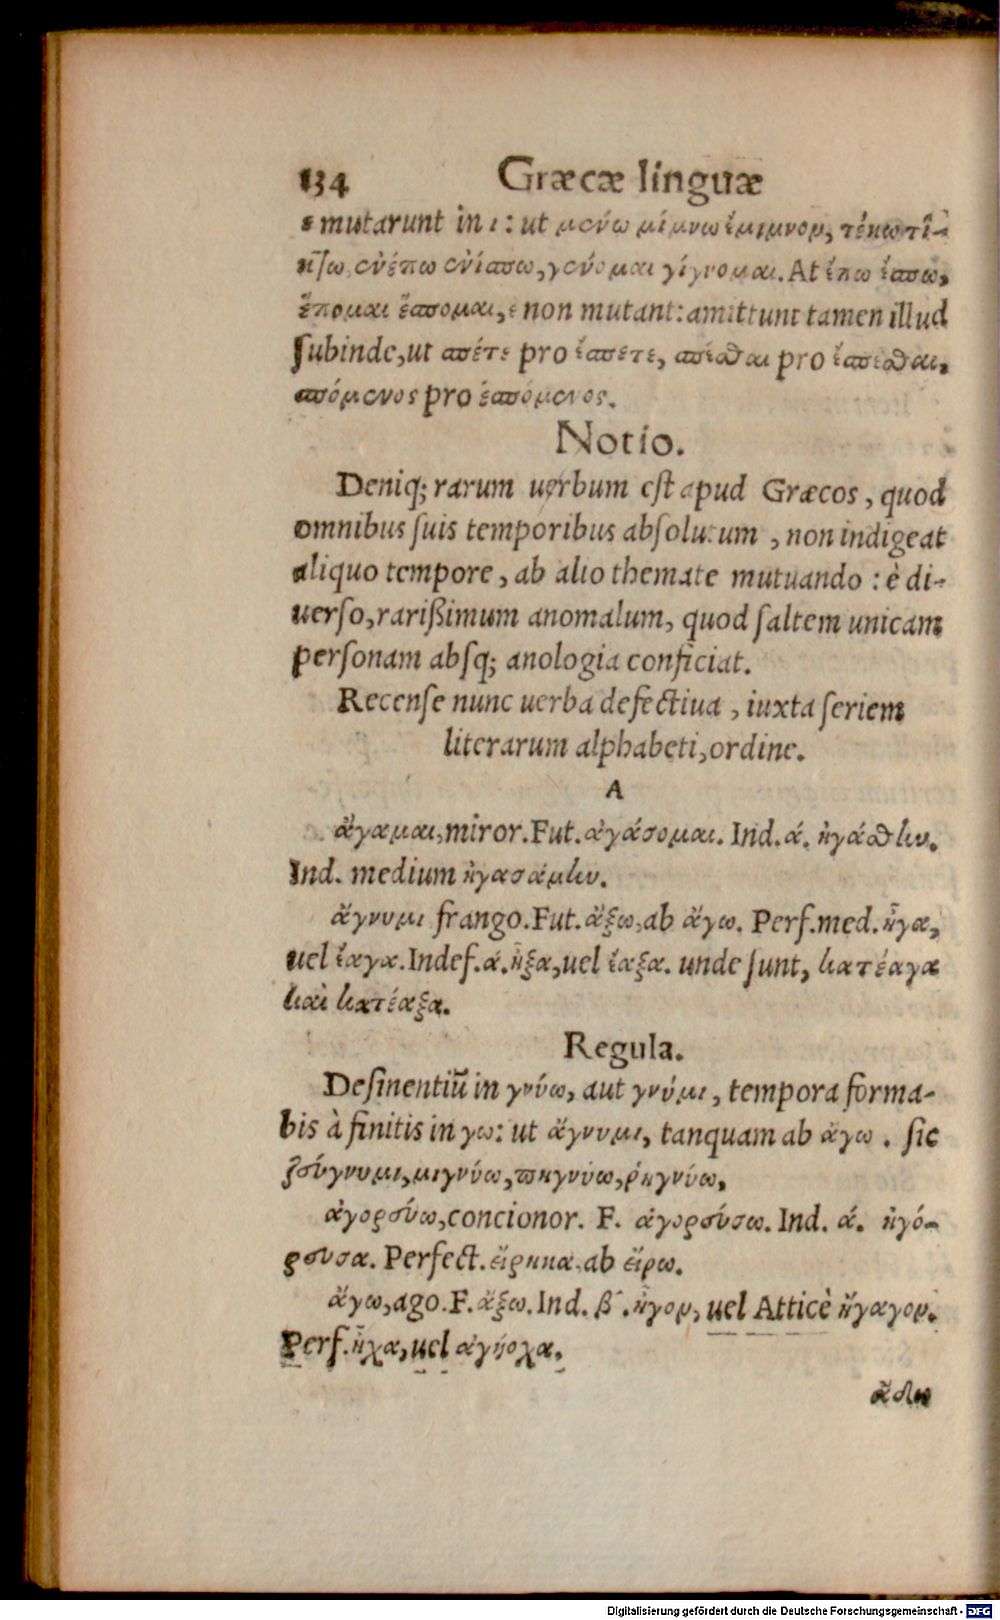 134 Græcæ linguæ
ε mutarunt in ι: ut μένω μίμνω ἔμιμνον, τέκω τί-
κτω, ἐνέπω ἐνίσπω, γένομαι γίγνομαι. At ἕπω ἕσπω,
ἕπομαι ἕσπομαι, ε non mutant: amittunt tamen illud
ſubinde, ut σπέτε pro ἑσπέτε, σπέσθαι pro ἑσπέσθαι,
σπόμενος pro ἑσπόμενος.
Notio.
Deniq; rarum uerbum eſt apud Græcos, quod
omnibus ſuis temporibus abſolutum, non indigeat
aliquo tempore, ab alio themate mutuando: è di-
uerſo, rariſſimum anomalum, quod ſaltem unicam
perſonam abſq; anologia conficiat.
Recenſe nunc uerba defectiua, iuxta ſeriem
literarum alphabeti, ordine.
A
ἄγαμαι, miror. Fut. ἀγάσομαι. Ind. ά. ἠγάσθην.
Ind. medium ἠγασάμην.
ἄγνυμι frango. Fut. ἄξω, ab ἄγω. Perf. med. ἦγα,
uel ἔαγα. Indef. ά. ἦξα, uel ἔαξα. unde ſunt, κατέαγα
καὶ κατέαξα.
Regula.
Deſinentiū in γνύω, aut γνύμι, tempora forma-
bis à finitis in γω: ut ἄγνυμι, tanquam ab ἄγω. ſic
ζεύγνυμι, μιγνύω, πηγνύω, ῥηγνύω,
ἀγορεύω, concionor. F. ἀγορεύσω. Ind. ά. ἠγό-
ρευσα. Perfect. εἴρηκα, ab εἴρω.
ἄγω, ago. F. ἄξω. Ind. β΄. ἦγον, uel Atticè ἤγαγον.
Perf. ἦχα, uel ἀγήοχα.
ᾄδω